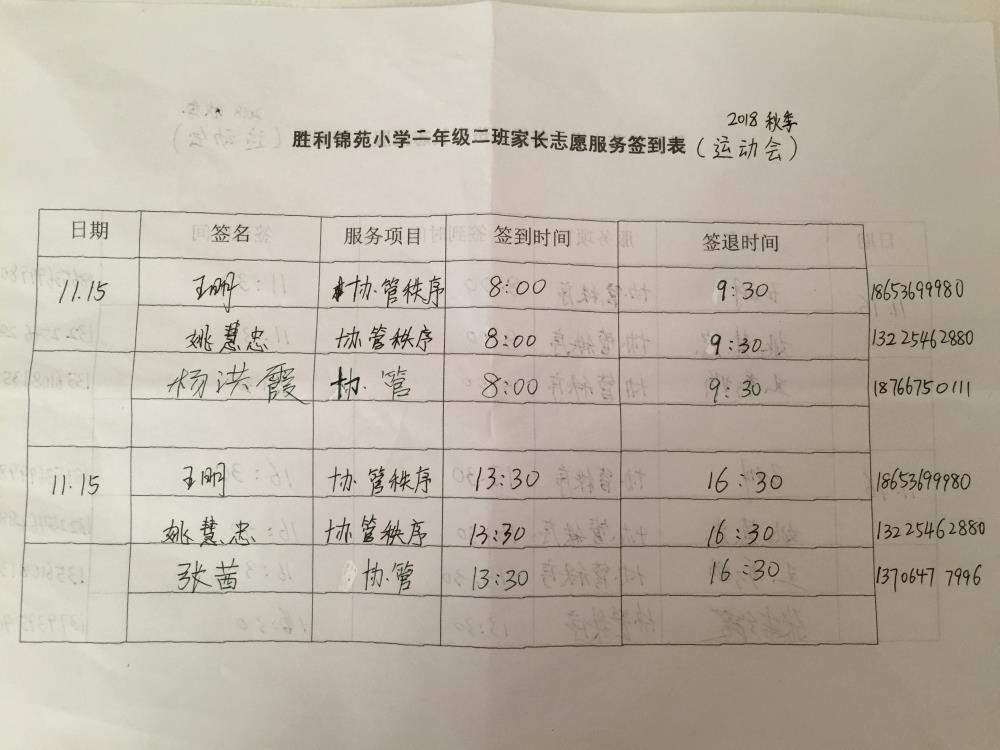 2018 秋季
胜利锦苑小学二年级二班家长志愿服务签到表（运动会）
日期 签名 服务项目 签到时间 签退时间
11.15 王明 协管秩序 8:00 9:30 18653699980
姚慧忠 协管秩序 8:00 9:30 13225462880
杨洪霞 协管 8:00 9:30 18766750111
11.15 王明 协管秩序 13:30 16:30 18653699980
姚慧忠 协管秩序 13:30 16:30 13225462880
张茜 协管 13:30 16:30 1370647 7996